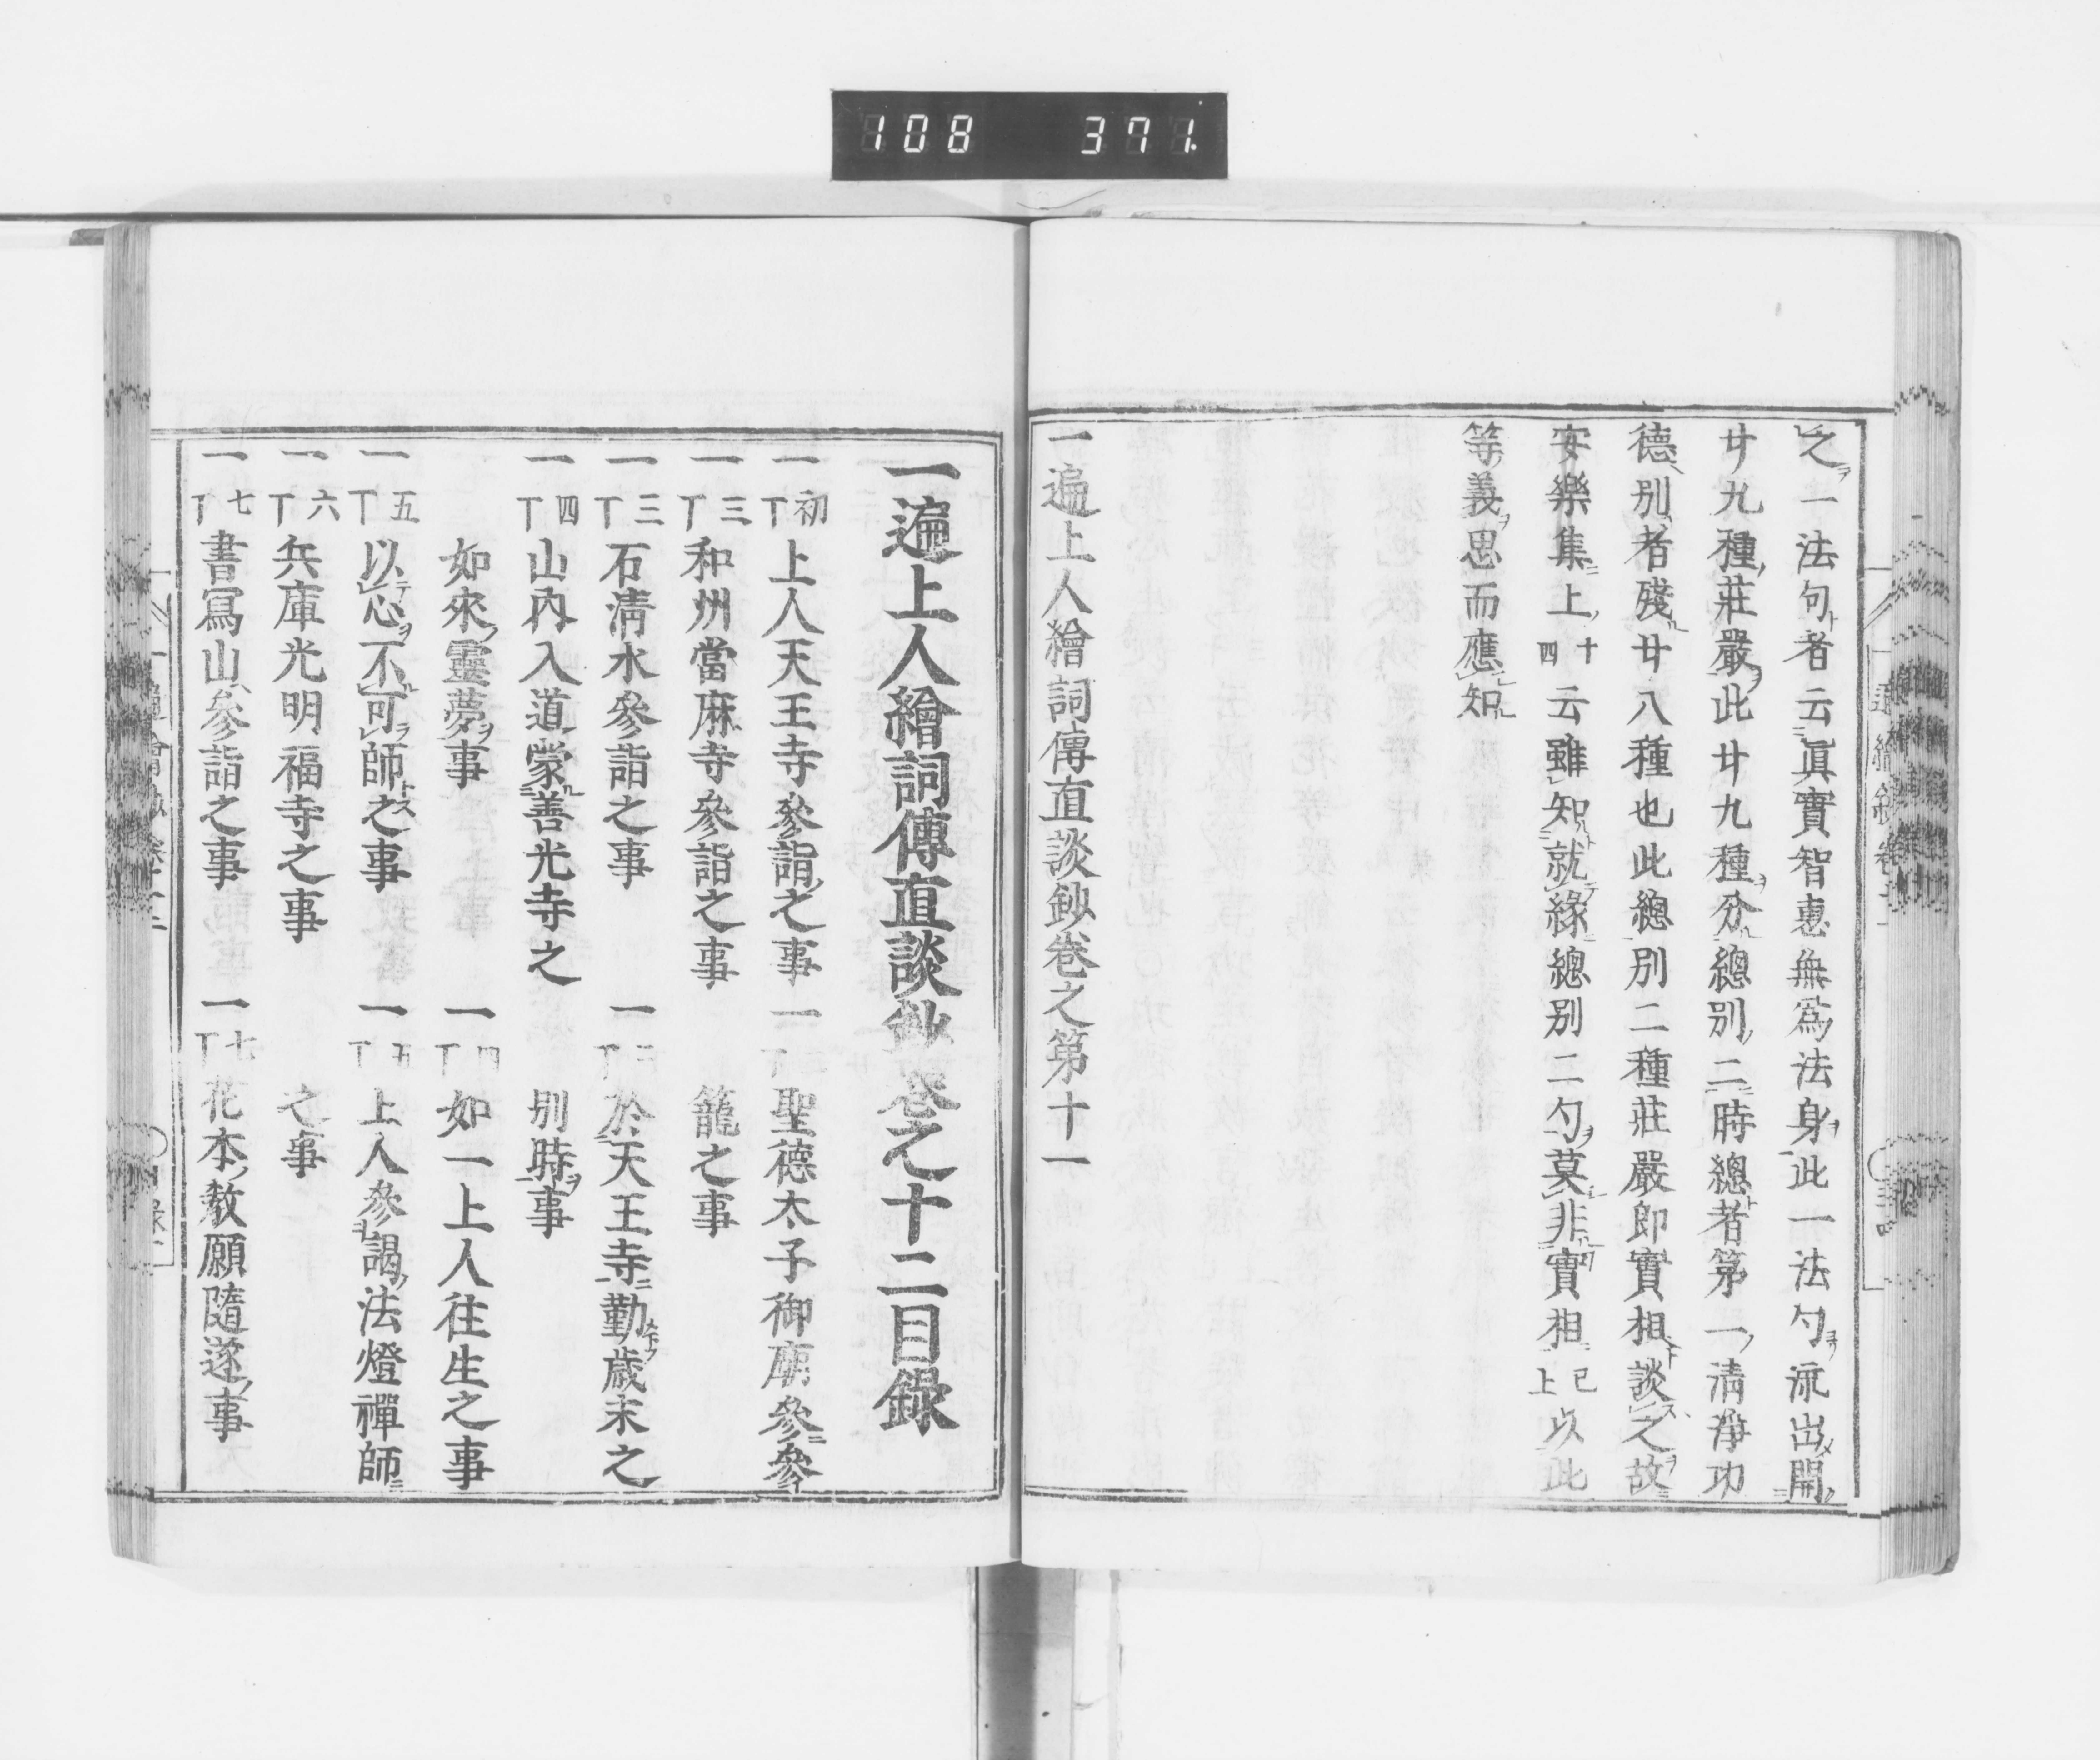 108 371.
之一法句者云眞實智惠無爲法身此一法勺流出開
廿九種莊嚴此廿九種分總別二時總者第一清淨功
德別者殘廿八種也此總別二種莊嚴即實相談之故
安樂集上十四云雖知就緣總別二勺莫非實相已上以此
等義思而應知
一遍上人繪詞傳直談鈔卷之第十一
一遍上人繪詞傳直談鈔卷之十二目錄
一初丁上人天王寺參詣之事
一二丁聖德太子御廟參參
籠之事
一三丁和州當麻寺參詣之事
一三丁石清水參詣之事
一三丁於天王寺勤歲末之
別時事
一四丁山內入道蒙善光寺之
如來靈夢事
一四丁如一上人往生之事
一五丁以心不可師之事
一五丁上人參謁法燈禪師
之事
一六丁兵庫光明福寺之事
一七丁書寫山參詣之事
一七丁花本教願隨逐事